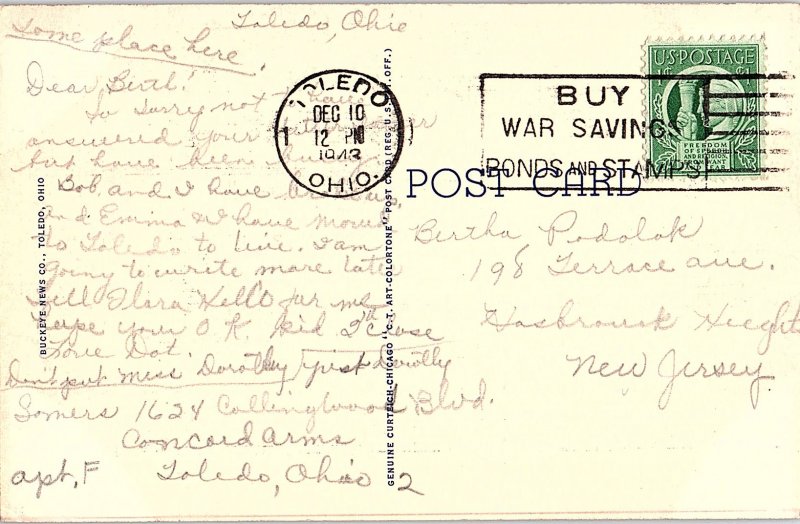 Toledo, Ohio
Some place here.
Dear Berth!
So sorry not to have
answered your letter
but have been
Bob, and I have
and Emma & I have moved
to Toledo to live. I am
going to write more later
Tell Flora Hello for me
hope your O.K. kid
Love Dot.
Don't put Miss Dorothy just Dorothy
Somers 1624 Collingwood Blvd.
Concord Arms
apt, F Toledo, Ohio 2
BUCKEYE NEWS CO., TOLEDO, OHIO
GENUINE CURTEICH-CHICAGO "C.T. ART-COLORTONE" POST CARD (REG. U.S. PAT. OFF.)
TOLEDO
DEC 10
1 12 PM
1943
OHIO.
BUY
WAR SAVINGS
BONDS AND STAMPS
U.S. POSTAGE
1¢
FREEDOM
OF SPEECH
AND RELIGION,
FROM WANT
AND FEAR
POST CARD
Bertha Podolak
198 Terrace ave.
Hasbrouck Heights
New Jersey